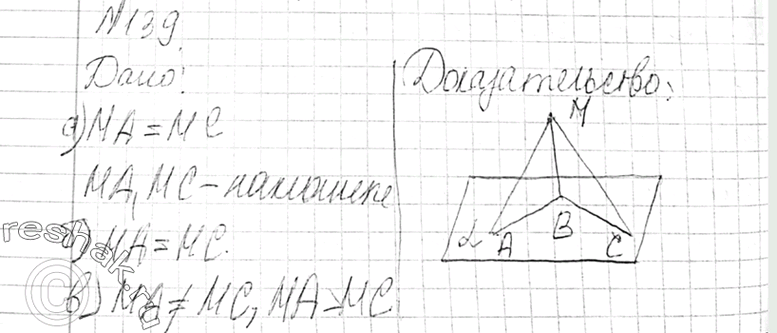 №139
Дано:
Доказательство:
а) MA = MC
MA, MC - наклонные
б) MA = MC.
в) MA ≠ MC, MA > MC
M
α A B C
reshak.ru
©